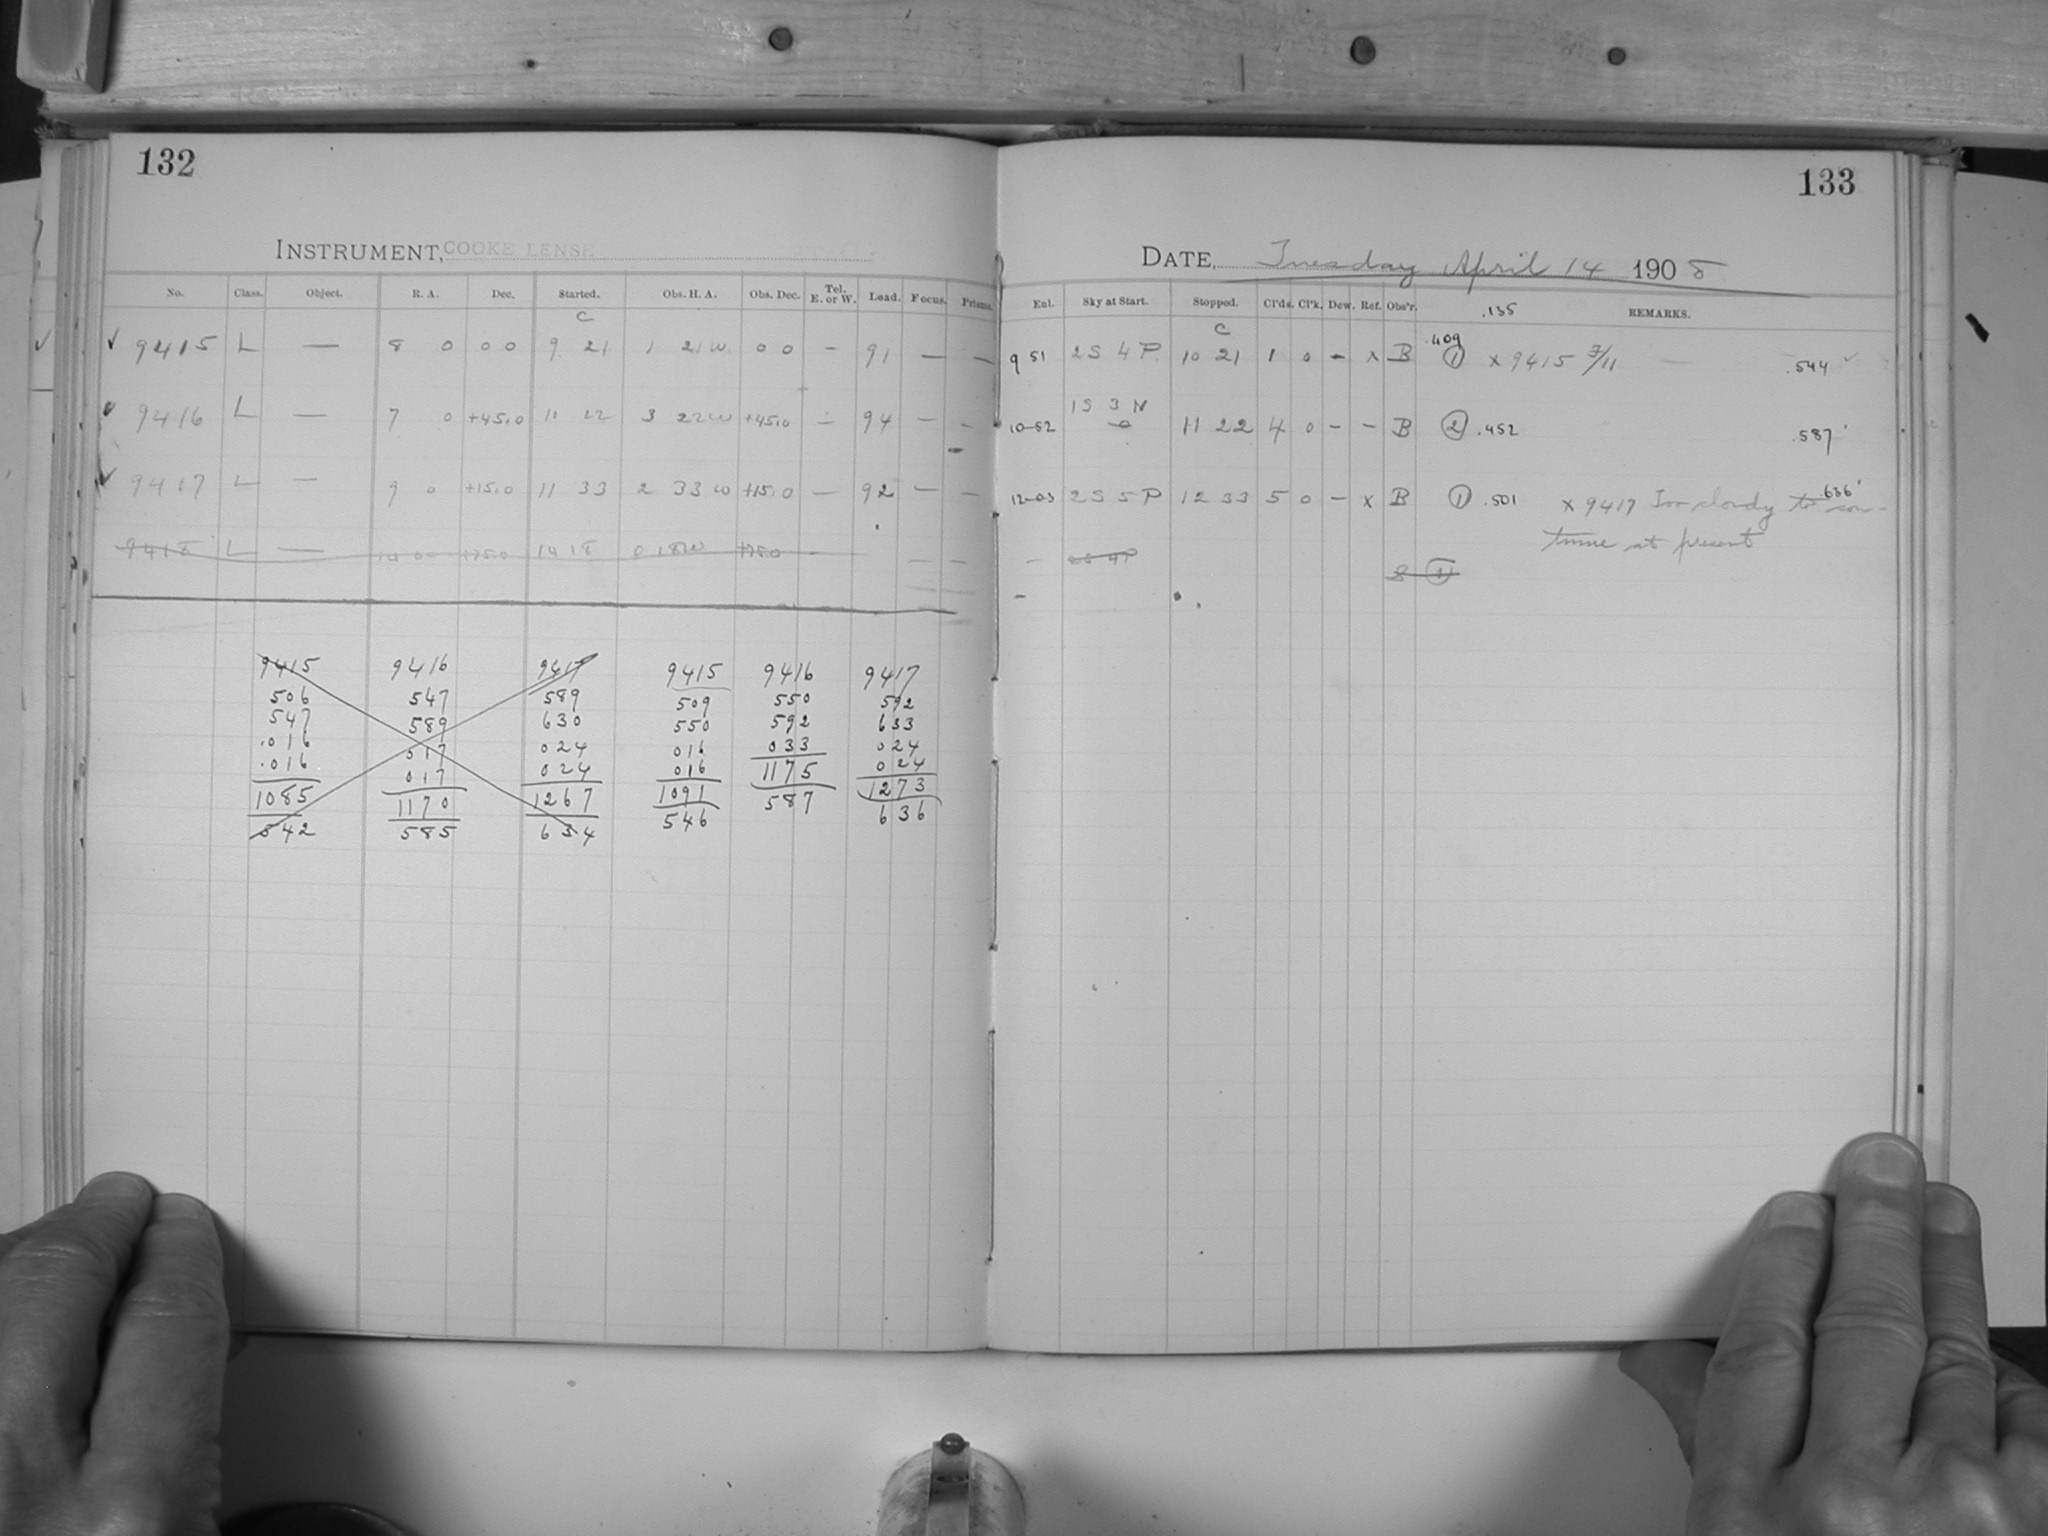 132
INSTRUMENT, COOKE LENSE
No. Class. Object. R. A. Dec. Started. Obs. H. A. Obs. Dec. Tel. E. or W. Load. Focus. Prisms.
C
✓ 9415 L — 8 0 0 0 9 21 1 21 W 0 0 — 91 — —
9416 L — 7 0 +45.0 11 22 3 22 W +45.0 — 94 — —
✓ 9417 L — 9 0 +15.0 11 33 2 33 W +15.0 — 92 — —
9418 L — 14 00 +75.0 14 18 0 18 W +75.0 — — —
9415 9416 9417 9415 9416 9417
506 547 589 509 550 592
547 589 630 550 592 633
.016 017 024 016 033 024
.016 017 024 016 1175 024
1085 1170 1267 1091 587 1273
542 585 634 546 636
133
DATE, Tuesday April 14 1908
Enl. Sky at Start. Stopped. Cl'ds. Cl'k. Dew. Ref. Obs'r. REMARKS.
.135
C
9 51 2S 4 P. 10 21 1 0 – x B .409 ① x 9415 7/11 .544 ✓
1S 3 N
10-52 11 22 4 0 – – B ② .452 .587
12-03 2S 5 P 12 33 5 0 – x B ① .501 x 9417 Too cloudy to con- .636
tinue at present
– 2S 4P
8 ①